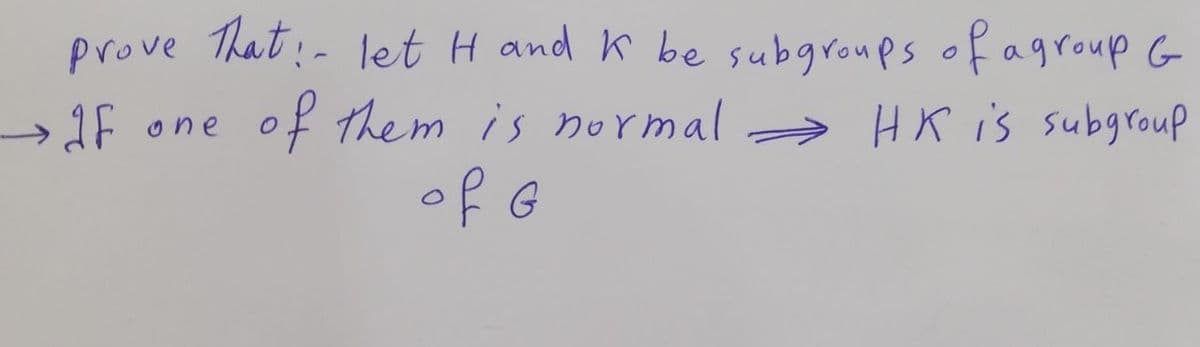 prove That:- let H and K be subgroups of a group G
→ If one of them is normal ⇒ HK is subgroup
of G